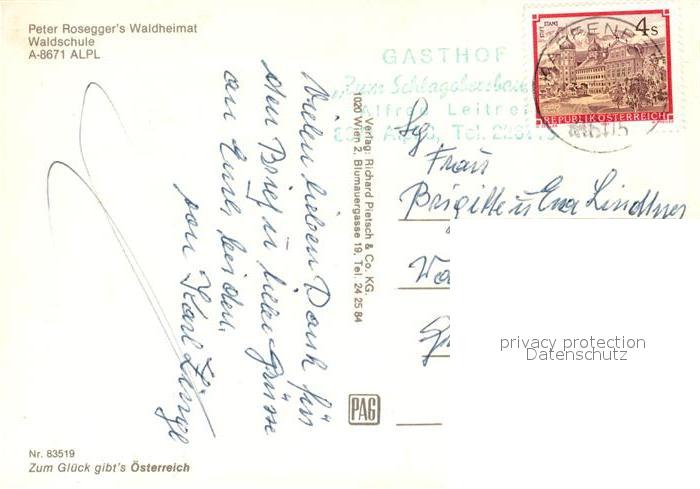 Peter Rosegger's Waldheimat
Waldschule
A-8671 ALPL
GASTHOF
„Zum Schlagobersbauer
Alfred Leitne
Alpl, Tel.
STIFT STAMS
4 S
REPUBLIK ÖSTERREICH
Vielen lieben Dank für
den Brief u. liebe Grüsse
an Euch beiden.
von Karl
Verlag: Richard Pietsch & Co. KG.
1020 Wien 2, Blumauergasse 19, Tel. 24 25 84
Frau
Brigitte u Eva Lindtner
privacy protection
Datenschutz
PAG
Nr. 83519
Zum Glück gibt's Österreich